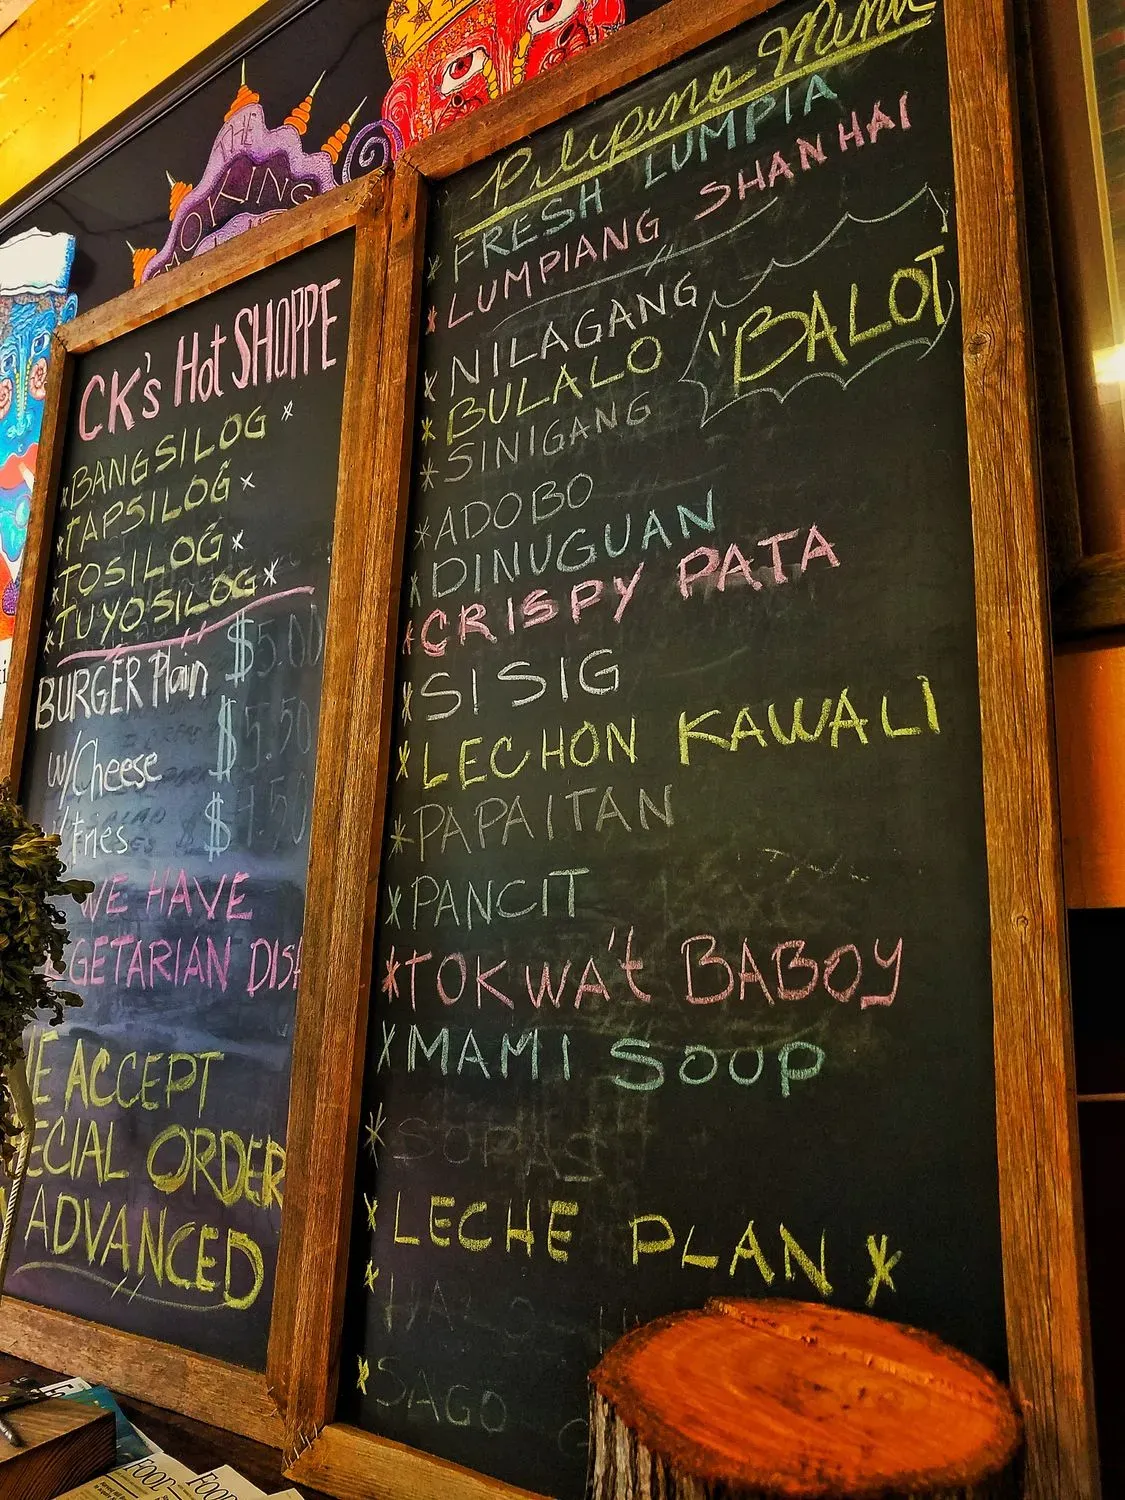 THE
OKING
CK's Hot SHOPPE
BANGSILOG
TAPSILOG
TOSILOG
TUYOSILOG
BURGER Plain $5.00
w/Cheese $5.50
Fries $ .50
WE HAVE
GETARIAN DIS
WE ACCEPT
ECIAL ORDER
ADVANCED
Pilipino Menu
FRESH LUMPIA
LUMPIANG SHANHAI
NILAGANG
BULALO
"BALOT
SINIGANG
ADOBO
DINUGUAN
CRISPY PATA
SISIG
LECHON KAWALI
PAPAITAN
PANCIT
TOKWA't BABOY
MAMI SOUP
SOPAS
LECHE PLAN
SAGO
FOOD
FOOD